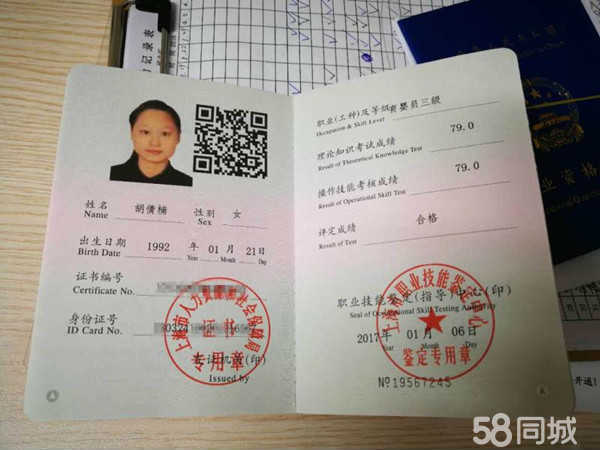 记录表
姓名 胡倩楠 性别 女
Name Sex
出生日期 1992 年 01 月 21 日
Birth Date Year Month Day
证书编号
Certificate No.
身份证号
ID Card No.
证书
专用章
发证机关(印)
Issued by
职业(工种)及等级 育婴员三级
Occupation & Skill Level
理论知识考试成绩 79.0
Result of Theoretical Knowledge Test
操作技能考核成绩 79.0
Result of Operational Skill Test
评定成绩 合格
Result of Test
职业技能鉴定(指导)中心(印)
Seal of Occupational Skill Testing Authority
2017 年 01 月 06 日
Year Month Day
鉴定专用章
№19567245
业资格
开通!
58同城